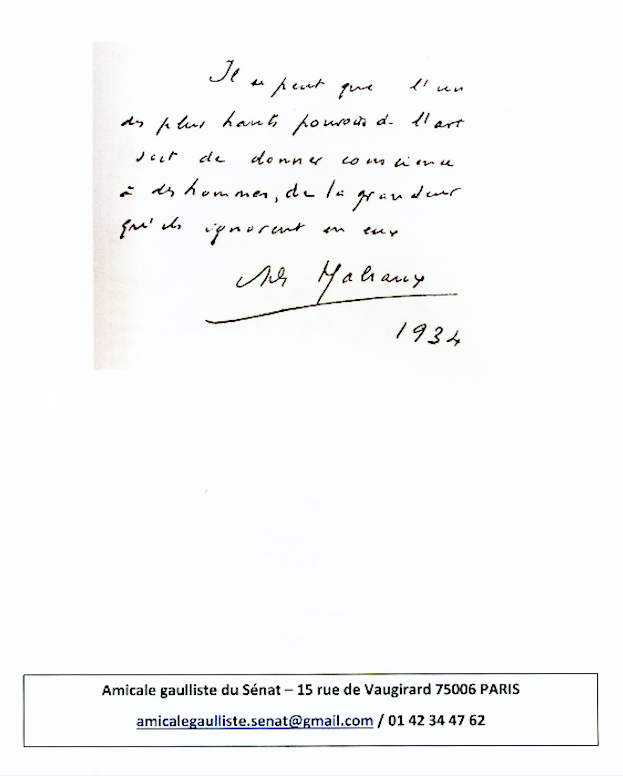 Il se peut que l'un
des plus hauts pouvoirs de l'art
soit de donner conscience
à des hommes, de la grandeur
qu'ils ignorent en eux
André Malraux
1934
Amicale gaulliste du Sénat – 15 rue de Vaugirard 75006 PARIS
amicalegaulliste.senat@gmail.com / 01 42 34 47 62